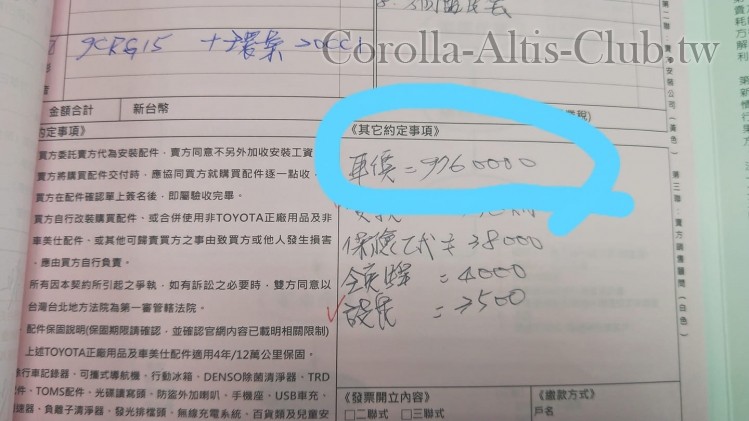 Corolla-Altis-Club.tw
金額合計 新台幣
約定事項》
買方委託賣方代為安裝配件，賣方同意不另外加收安裝工資
賣方將購買配件交付時，應協同買方就購買配件逐一點收，
買方在配件確認單上簽名後，即屬驗收完畢。
買方自行改裝購買配件，或合併使用非TOYOTA正廠用品及非
車美仕配件，或其他可歸責買方之事由致買方或他人發生損害
，應由買方自行負責。
所有因本契約所引起之爭執，如有訴訟之必要時，雙方同意以
台灣台北地方法院為第一審管轄法院。
配件保固說明(保固期限請確認，並確認官網內容已載明相關限制)
上述TOYOTA正廠用品及車美仕配件適用4年/12萬公里保固。
行車記錄器、可攜式導航機、行動冰箱、DENSO除菌清淨器、TRD
件、TOMS配件、光碟讀寫頭、防盜外加喇叭、手機座、USB車充、
速器、負離子清淨器、發光排檔頭、無線充電系統、百貨類及兒童安
《其它約定事項》
車價=9760000
保險乙式≒38000
=4000
=2500
《發票開立內容》
□二聯式 □三聯式
《繳款方式》
戶名
第三聯：賣方銷售顧問（白色）